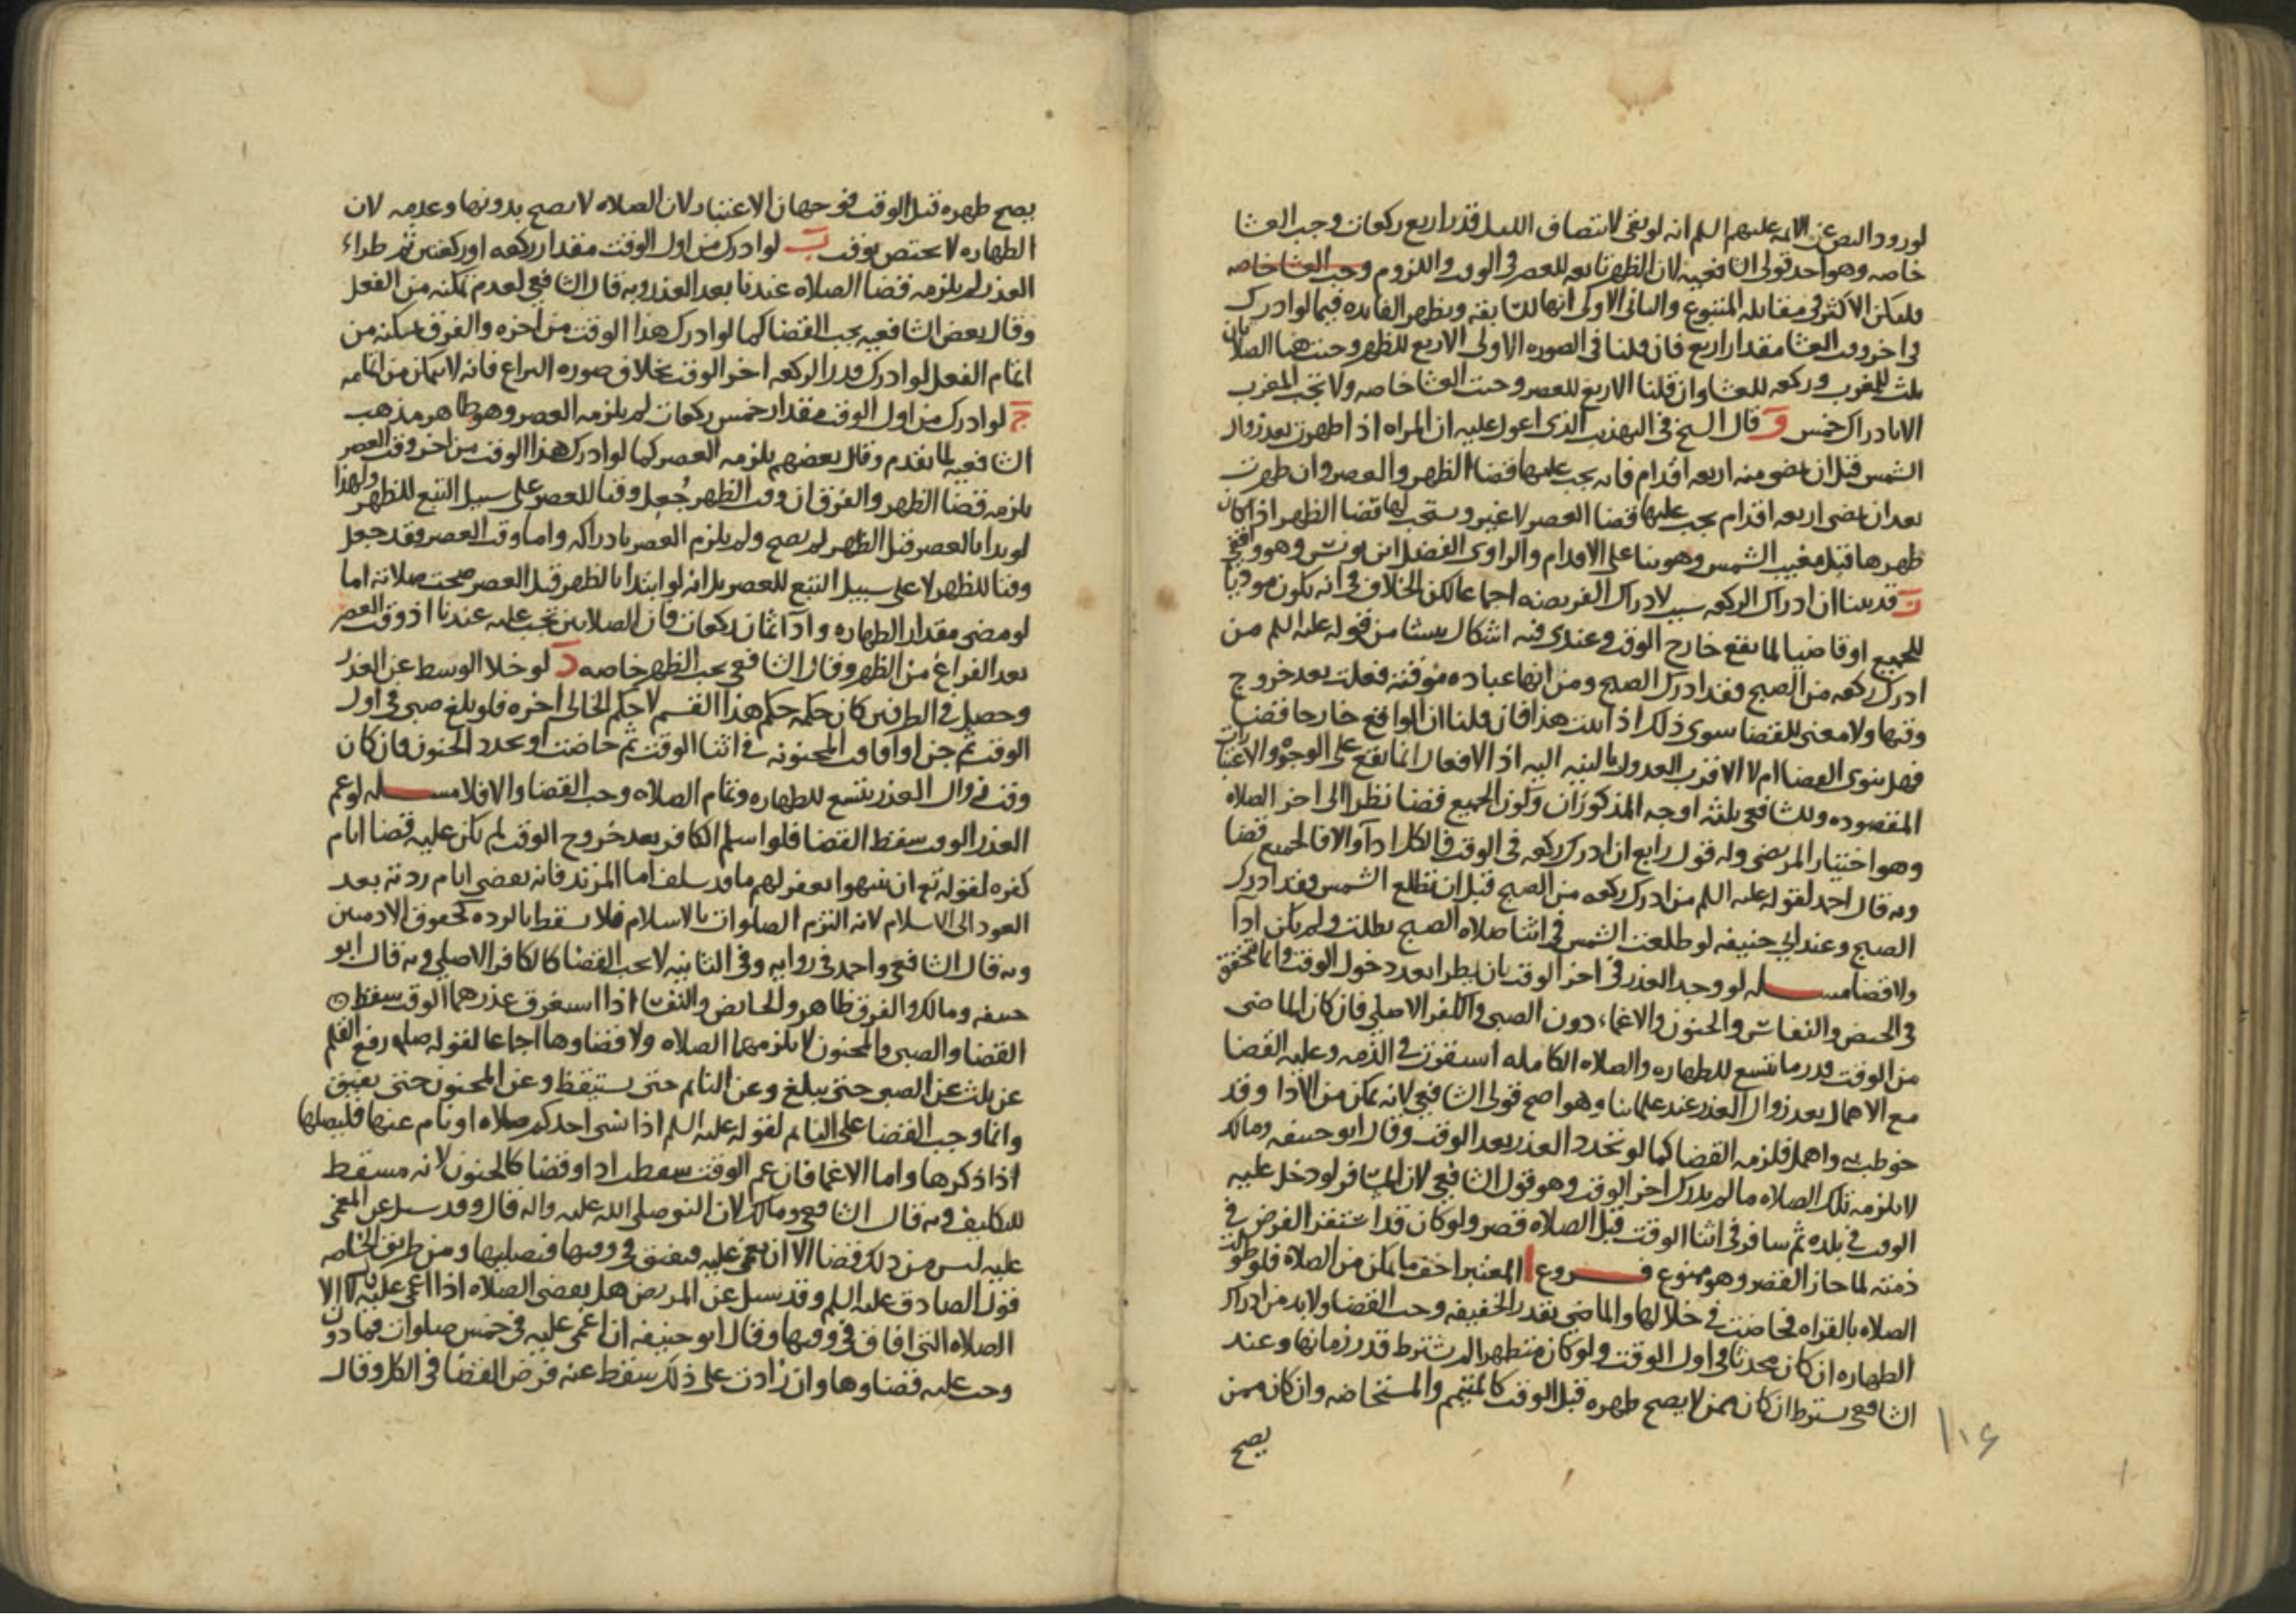 لورود النص عن الائمه عليهم السلم انه لو بقى لانتصاف الليل قدر اربع ركعات وجب العشا
خاصه وهو احد قولى الشافعيه لان الظهر تابعه للعصر فى الوقت واللزوم وجب العشا خاصه
فليكن الاكثر فى مقابله المتبوع والثانى الاولى انها السابقه ويظهر الفايده فيما لو ادرك
فى اخر وقت العشا مقدار اربع فان قلنا فى الصوره الاولى الاربع للظهر وجبت هنا الصلاتان
ثلث للمغرب وركعه للعشا وان قلنا الاربع للعصر وجبت العشا خاصه ولا تجب المغرب
الا بادراك خمس و قال الشيخ فى التهذيب الذى اعول عليه ان المراه اذا طهرت بعد زوال
الشمس قبل ان يمضى منه اربعه اقدام فانه يجب عليها قضا الظهر والعصر وان طهرت
بعد ان يمضى اربعه اقدام يجب عليها قضا العصر لا غير ويستحب لها قضا الظهر اذا كان
طهرها قبل مغيب الشمس وهو بنا على الاقدام والراوى الفضل ابن يونس وهو واقفى
ز قد بينا ان ادراك الركعه سبب لادراك الفريضه اجماعا لكن الخلاف فى انه يكون موديا
للجميع او قاضيا لما يقع خارج الوقت وعندى فيه اشكال ينشا من قوله عليه السلم من
ادرك ركعه من الصبح فقد ادرك الصبح ومن انها عباده موقته فعلت بعد خروج
وقتها ولا معنى للقضا سوى ذلك اذا ثبت هذا فان قلنا ان الواقع خارجا قضا
فهل ينوى القضا ام لا الاقرب العدول بالنيه اليه اذ الافعال انما يقع على الوجوه والاعتبارات
المقصوده وللشافعى ثلثه اوجه المذكوران وكون الجميع قضا نظرا الى اخر الصلاه
وهو اختيار المرتضى وله قول رابع ان ادرك ركعه فى الوقت فالكل ادآ والا فالجميع قضا
وبه قال احمد لقوله عليه السلم من ادرك ركعه من الصبح قبل ان تطلع الشمس فقد ادرك
الصبح وعند ابى حنيفه لو طلعت الشمس فى اثنا صلاه الصبح بطلت ولم يكن ادآ
ولا قضا مسـله لو وجد العذر فى اخر الوقت بان يطرا بعد دخول الوقت وانما تحقق
فى الحيض والنفاس والجنون والاغماء دون الصبى والكفر الاصلى فان كان الماضى
من الوقت قدر ما يتسع للطهاره والصلاه الكامله استقرت فى الذمه وعليه القضا
مع الاهمال بعد زوال العذر عند علمائنا وهو اصح قولى الشافعى لانه تمكن من الادا وقد
خوطب به واهمل فلزمه القضا كما لو تجدد العذر بعد الوقت وقال ابو حنيفه ومالك
لا يلزمه تلك الصلاه ما لم يدرك اخر الوقت وهو قول الشافعى لان المسافر لو دخل عليه
الوقت فى بلده ثم سافر فى اثنا الوقت قبل الصلاه قصر ولو كان قد استقر الفرض فى
ذمته لما جاز القصر وهو ممنوع فـــروع ا المعتبر اخف ما يمكن من الصلاه فلو طولت
الصلاه بالقراه فحاضت فى خلالها والماضى بقدر الخفيفه وجب القضا ولا بد من ادراك
الطهاره ان كان محدثا فى اول الوقت ولو كان متطهرا لم يشترط قدر زمانها وعند
الشافعى يشترط ان كان ممن لا يصح طهره قبل الوقت كالمتيمم والمستحاضه وان كان ممن
يصح
١١٤
يصح طهره قبل الوقت فوجهان الاعتبار لان الصلاه لا يصح بدونها وعدمه لان
الطهاره لا يختص بوقت ب لو ادرك من اول الوقت مقدار ركعه او ركعتين ثم طراء
العذر لم يلزمه قضا الصلاه عندنا بعد العذر وبه قال الشافعى لعدم تمكنه من الفعل
وقال بعض الشافعيه يجب القضا كما لو ادرك هذا الوقت من اخره والفرق تمكنه من
اتمام الفعل لو ادرك قدر الركعه اخر الوقت بخلاف صوره النزاع فانه لا يتمكن من اتمامه
ج لو ادرك من اول الوقت مقدار خمس ركعات لم يلزمه العصر وهو ظاهر مذهب
الشافعيه لما تقدم وقال بعضهم يلزمه العصر كما لو ادرك هذا الوقت من اخر وقت العصر
يلزمه قضا الظهر والفرق ان وقت الظهر جُعل وقتا للعصر على سبيل التبع للظهر ولهذا
لو بدا بالعصر قبل الظهر لم يصح ولم يلزم العصر بادراكه واما وقت العصر فقد جعل
وقتا للظهر لا على سبيل التبع للعصر بل انه لو ابتدا بالظهر قبل العصر صحت صلاته اما
لو مضى مقدار الطهاره وادآ ثمان ركعات فان الصلاتين تجب عليه عندنا اذ وقت العصر
بعد الفراغ من الظهر وقال الشافعى يجب الظهر خاصه د لو خلا الوسط عن العذر
وحصل فى الطرفين كان حكمه حكم هذا القسم لا حكم الخالى اخره فلو بلغ صبى فى اول
الوقت ثم جن او افاقت المجنونه فى اثنا الوقت ثم حاضت او تجدد الجنون فان كان
وقت زوال العذر يتسع للطهاره وتمام الصلاه وجب القضا والا فلا مســله لو عم
العذر الوقت سقط القضا فلو اسلم الكافر بعد خروج الوقت لم يكن عليه قضا ايام
كفره لقوله تع ان ينتهوا يغفر لهم ما قد سلف اما المرتد فانه يقضى ايام ردته بعد
العود الى الاسلام لانه التزم الصلوات بالاسلام فلا يسقط بالرده كحقوق الادميين
وبه قال الشافعى واحمد فى روايه وفى الثانيه لا يجب القضا كالكافر الاصلى وبه قال ابو
حنيفه ومالك والفرق ظاهر والحايض والنفسا اذا استغرق عذرهما الوقت سقط
القضا والصبى والمجنون لا يلزمهما الصلاه ولا قضاوها اجماعا لقوله صلعم رفع القلم
عن ثلث عن الصبى حتى يبلغ وعن النايم حتى يستيقظ وعن المجنون حتى يفيق
وانما وجب القضا على النايم لقوله عليه السلم اذا نسى احدكم صلاه او نام عنها فليصلها
اذا ذكرها واما الاغما فان عم الوقت سقطت ادا وقضا كالجنون لانه مسقط
للتكليف وبه قال الشافعى ومالك لان النبى صلى الله عليه واله قال وقد سيل عن المغمى
عليه ليس من ذلك قضا الا ان يغمى عليه فيفيق فى وقتها فيصليها ومن طريق الخاصه
قول الصادق عليه السلم وقد سيل عن المريض هل يقضى الصلاه اذا اغمى عليه قال لا الا
الصلاه التى افاق فى وقتها وقال ابو حنيفه ان اغمى عليه فى خمس صلوات فما دون
وجب عليه قضاوها وان زادت على ذلك سقط عنه فرض القضا فى الكل وقال